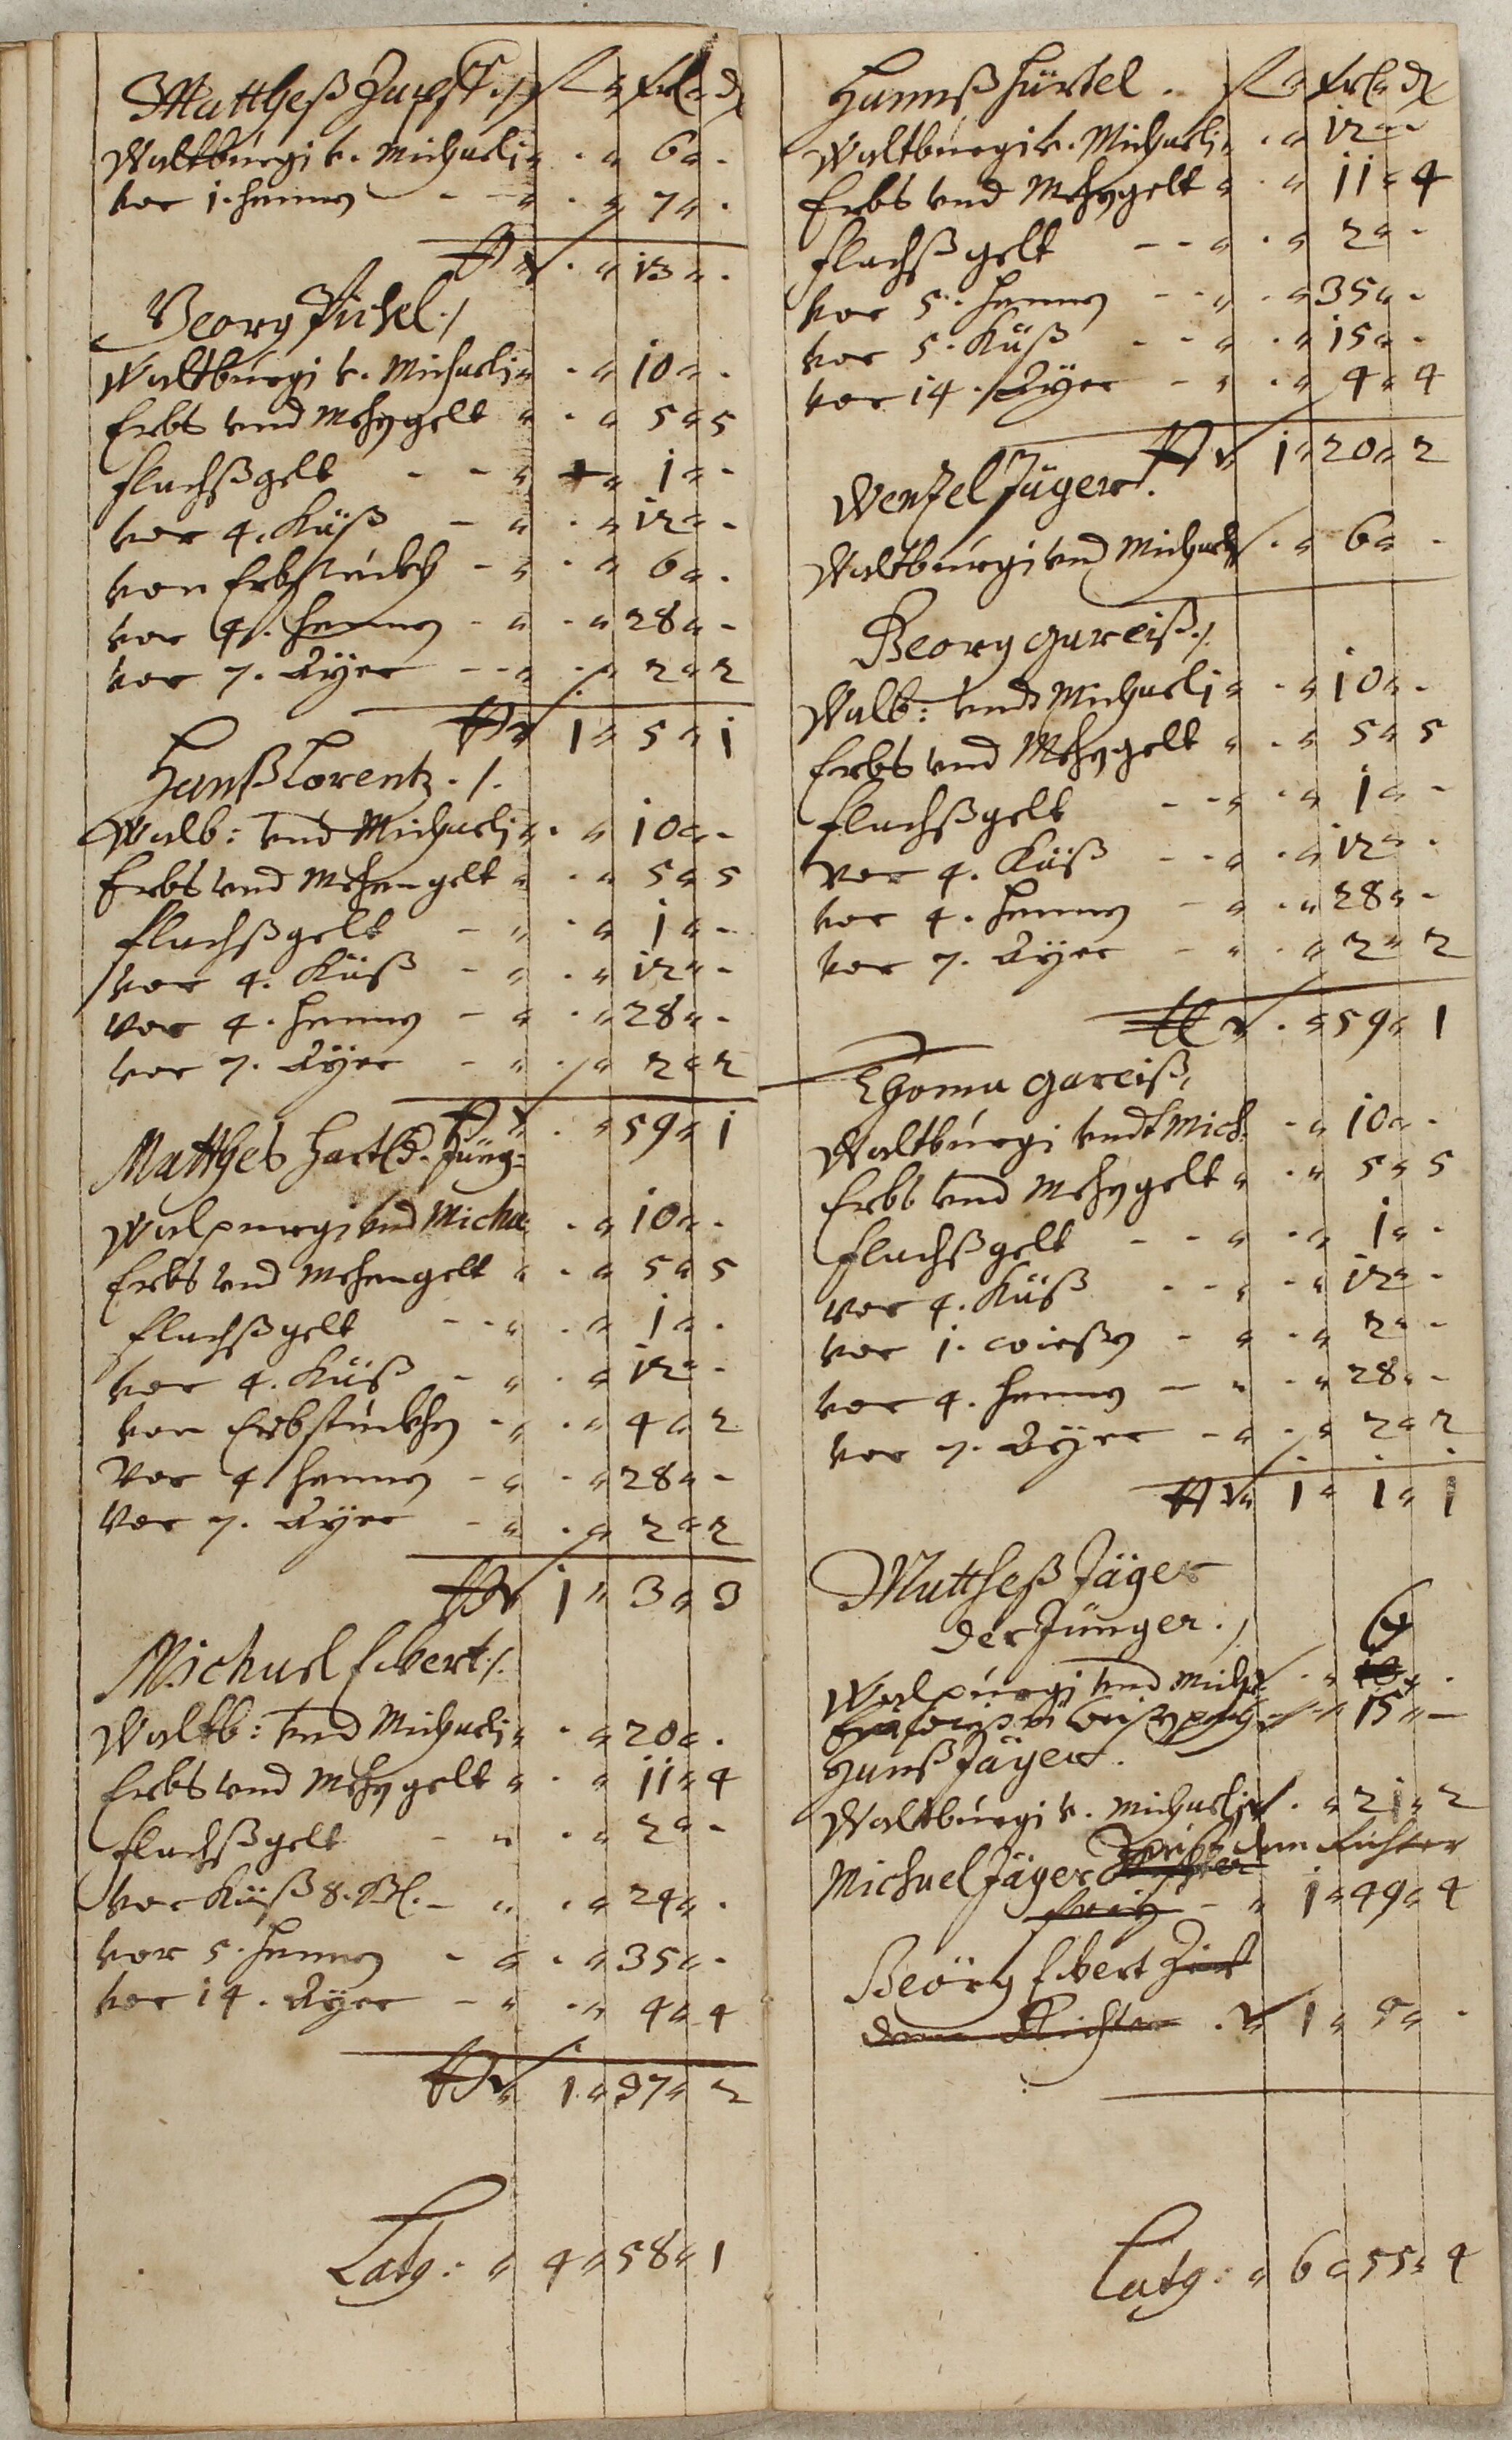 Mattheß Zupf ./. fl " krl " dl
Waltburgi v. Michaeli " . " 6 " .
vor 1. Henny - - " . " 7 " .
" . " 13 " .
Georg Pichel ./
Waltburgi v. Michaeli " . " 10 " .
Erbs vnd Mehygelt " . " 5 " 5
flachßgelt - - " " 1 " -
vor 4. Käß - " . " 12 " -
von Erbstückh - " . " 6 " .
vor 4. Henny - " . " 28 " -
vor 7. Ayer - - " . " 2 " 2
1 " 5 " 1
Hanß Lorentz ./.
Walb: vnd Michaeli " . " 10 " -
Erbs vnd Mehengelt " . " 5 " 5
flachßgelt - " . " 1 " -
vor 4. Käß - " . " 12 " -
vor 4. Henny - " . " 28 " -
vor 7. Ayer - " . " 2 " 2
. " 59 " 1
Matthes Hartl d. Jüng:
Walpurgi vnd Micha: . " 10 " .
Erbs vnd Mehengelt " . " 5 " 5
flachßgelt - - " . " 1 " .
vor 4. Käß - " . " 12 " -
von Erbstückhy - " . " 4 " 2
Vor 4 Henny - " . " 28 " -
Vor 7. Ayer - " . " 2 " 2
1 " 3 " 3
Michael Ebert ./.
Waltb: vnd Michaeli " . " 20 " .
Erbs vnd Mehygelt " . " 11 " 4
flachßgelt - " . " 2 " -
vor Käß 8. - " . " 24 " .
vor 5. Henny - " . " 35 " -
vor 14. Ayer - " . " 4 " 4
1 " 37 " 2
Latg: " 4 " 58 " 1
Hannß Hürtel . fl " krl " dl
Waltburgi v. Michaeli " . " 12 " -
Erbs vnd Mehygelt " . " 11 " 4
flachßgelt - - " . " 2 " -
vor 5. Henny - - " . " 35 " -
vor 5. Käß - - " . " 15 " -
vor 14. Ayer - " . " 4 " 4
1 " 20 " 2
Wenzel Jäger .
Waltburgi vnd Michaeli . " 6 " -
Georg Gareiß ./.
Walb: vnd Michaeli " . " 10 " -
Erbs vnd Mehygelt " . " 5 " 5
flachßgelt - - " . " 1 " -
Vor 4. Käß - - " . " 12 " .
vor 4. Henny - " . " 28 " -
vor 7. Ayer - " . " 2 " 2
. " 59 " 1
Thoma Gareiß,
Waltburgi vndt Mich: . " 10 " .
Erbs vnd Mehygelt " . " 5 " 5
flachßgelt - - " . " 1 " .
vor 4. Käß - - " . " 12 " -
vor 1. wießy - " . " 2 " -
vor 4. Henny - " . " 28 " -
vor 7. Ayer - " . " 2 " 2
1 " 1 " 1
Mattheß Jäger
der Jünger ./
Walpurgi vnd Micha: . "
15 " -
Hanß Jäger .
Waltburgi v. Michaeli . " 21 " 2
Michael Jäger dem Richter
- " 1 " 49 " 4
Geörg Ebert Zinst
dem Richter . 1 "
Latg: " 6 " 55 " 4